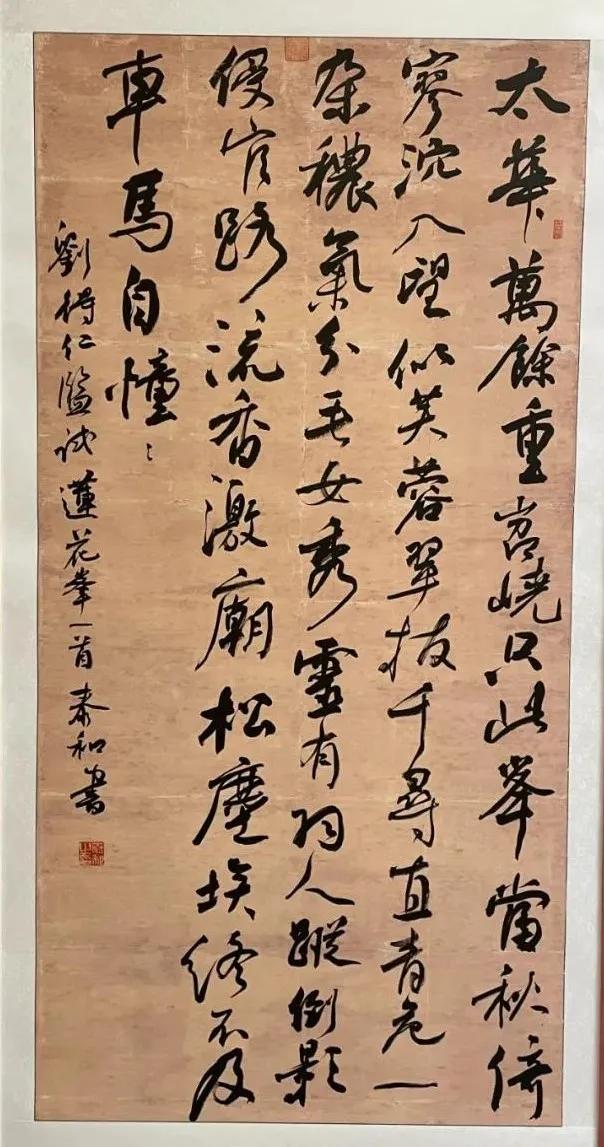 太華萬餘重岧嶢只此峯當秋倚
寥泬入望似芙蓉翠拔千尋直青危一
朵穠氣分毛女秀靈有羽人蹤倒影
侵官路流香激廟松塵埃終不及
車馬自憧〻
劉得仁監試蓮花峯一首泰和書